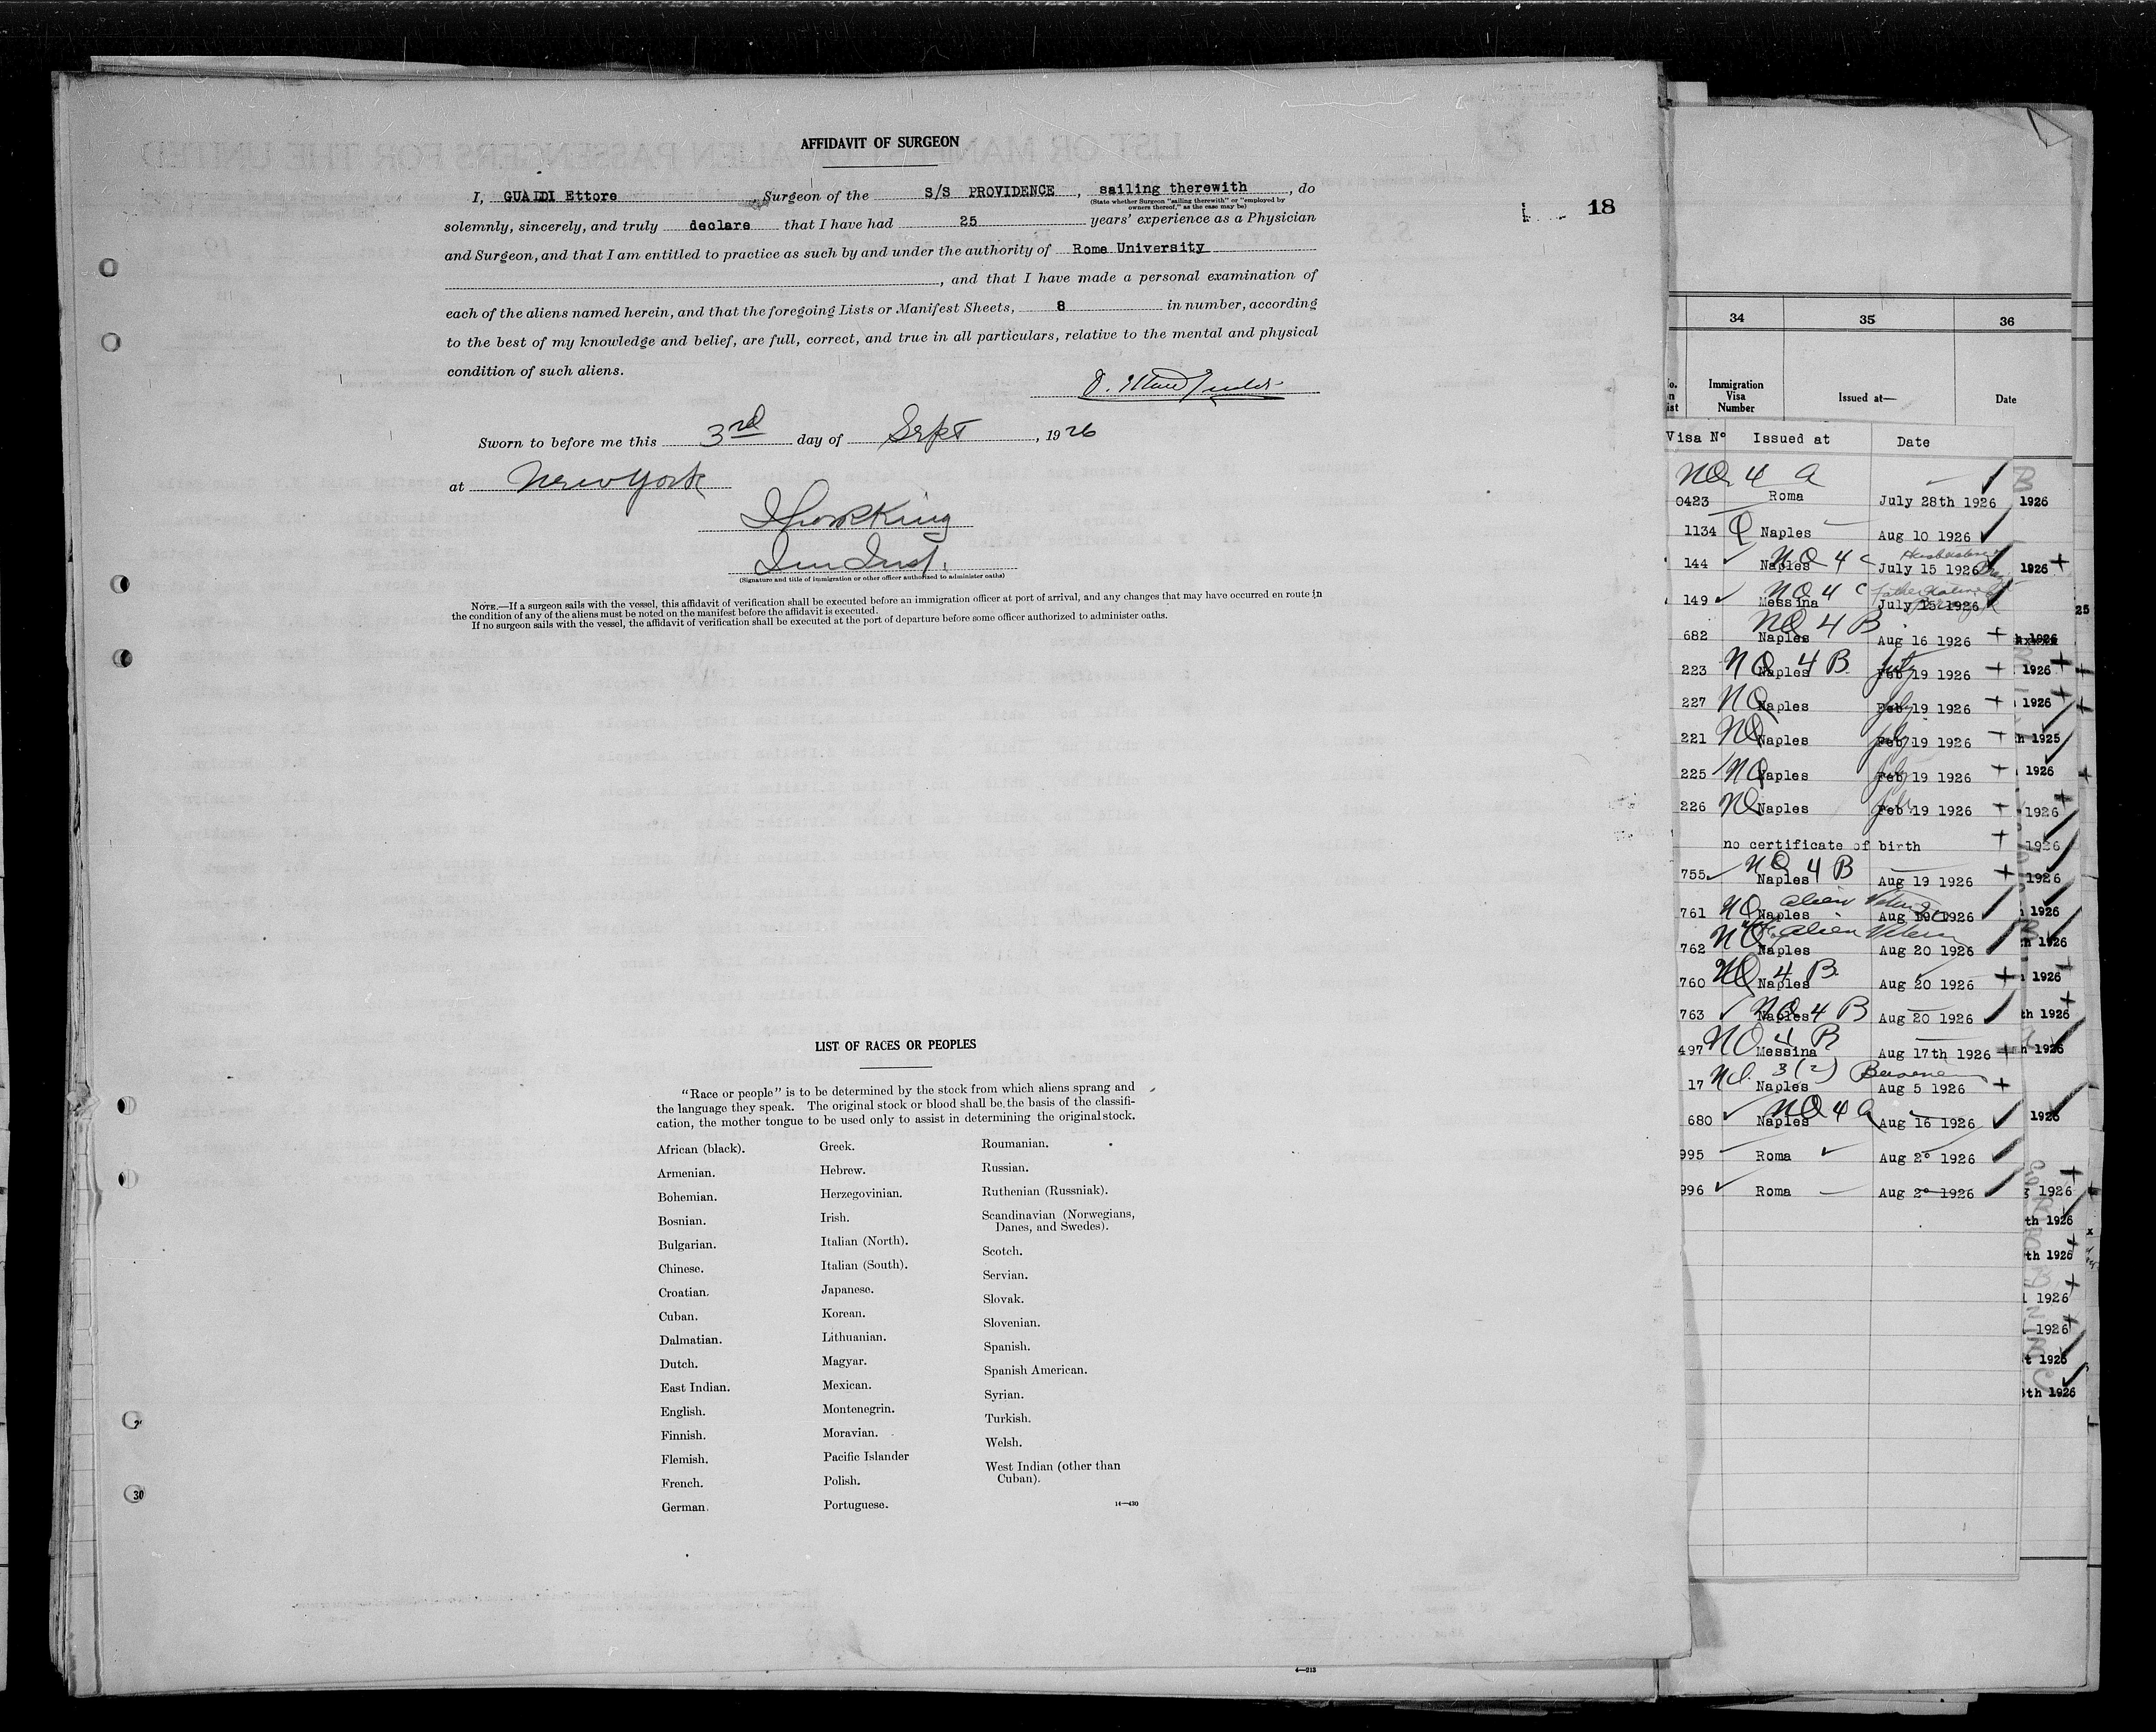 AFFIDAVIT OF SURGEON
I, GUALDI Ettore, Surgeon of the S/S PROVIDENCE, sailing therewith, do
(State whether Surgeon "sailing therewith" or "employed by
owners thereof," as the case may be)
18
solemnly, sincerely, and truly declare that I have had 25 years' experience as a Physician
and Surgeon, and that I am entitled to practice as such by and under the authority of Rome University
, and that I have made a personal examination of
each of the aliens named herein, and that the foregoing Lists or Manifest Sheets, 8 in number, according
to the best of my knowledge and belief, are full, correct, and true in all particulars, relative to the mental and physical
condition of such aliens.
Sworn to before me this 3rd day of Sept, 1926
at New York
(Signature and title of immigration or other officer authorized to administer oaths)
NOTE.—If a surgeon sails with the vessel, this affidavit of verification shall be executed before an immigration officer at port of arrival, and any changes that may have occurred en route in
the condition of any of the aliens must be noted on the manifest before the affidavit is executed.
If no surgeon sails with the vessel, the affidavit of verification shall be executed at the port of departure before some officer authorized to administer oaths.
LIST OF RACES OR PEOPLES
"Race or people" is to be determined by the stock from which aliens sprang and
the language they speak. The original stock or blood shall be the basis of the classifi-
cation, the mother tongue to be used only to assist in determining the original stock.
African (black).
Armenian.
Bohemian.
Bosnian.
Bulgarian.
Chinese.
Croatian.
Cuban.
Dalmatian.
Dutch.
East Indian.
English.
Finnish.
Flemish.
French.
German.
Greek.
Hebrew.
Herzegovinian.
Irish.
Italian (North).
Italian (South).
Japanese.
Korean.
Lithuanian.
Magyar.
Mexican.
Montenegrin.
Moravian.
Pacific Islander
Polish.
Portuguese.
Roumanian.
Russian.
Ruthenian (Russniak).
Scandinavian (Norwegians,
Danes, and Swedes).
Scotch.
Servian.
Slovak.
Slovenian.
Spanish.
Spanish American.
Syrian.
Turkish.
Welsh.
West Indian (other than
Cuban).
14—430
30
4—213
34 35 36
Immigration
Visa
Number
Issued at—
Date
Visa No Issued at Date
NQ 4 A
0423 Roma July 28th 1926 1926
1134 Q Naples Aug 10 1926
NQ 4 C
144 Naples July 15 1926 1926
NQ 4 C
149 Messina July 15 1926 25
NQ 4 B
682 Naples Aug 16 1926 1926
NQ 4 B July
223 Naples Feb 19 1926 1926
227 NQ Naples Feb July 19 1926 1926
221 NQ Naples Feb July 19 1926 h 1925
225 NQ Naples Feb July 19 1926 1926
226 NQ Naples Feb July 19 1926 1926
no certificate of birth 1926
NQ 4 B
755 Naples Aug 19 1926 1926
NQ alien
761 Naples Aug 19 1926 1926
NQ alien
762 Naples Aug 20 1926 h 1926
NQ 4 B
760 Naples Aug 20 1926 1926
NQ 4 B
763 Naples Aug 20 1926 th 1926
NQ 4 B
497 Messina Aug 17th 1926 h 1926
3(2)
17 Naples Aug 5 1926
NQ 4 A
680 Naples Aug 16 1926 1926
995 Roma Aug 2o 1926
996 Roma Aug 2o 1926 1926
th 1926
th 1926
1926
1926
t 1926
th 1926